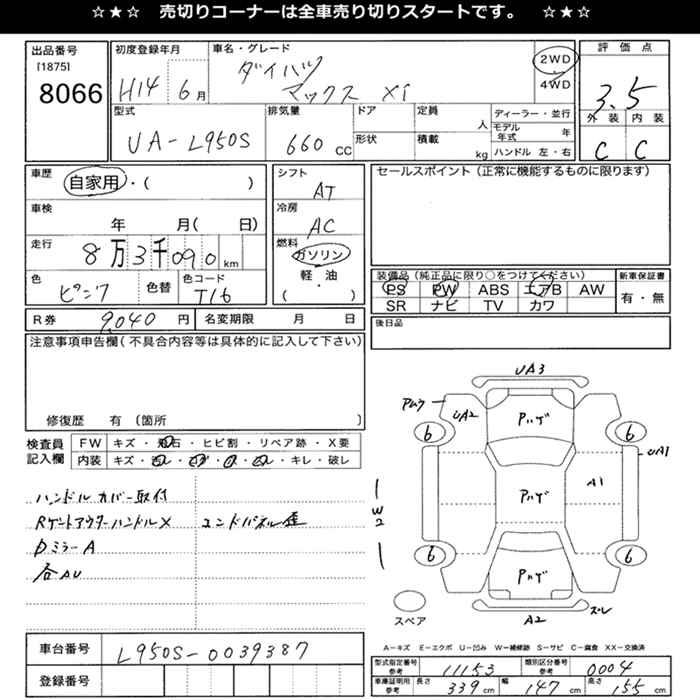 ☆★☆ 売切りコーナーは全車売り切りスタートです。 ☆★☆
出品番号
[1875]
8066
初度登録年月
H14 6月
車名・グレード
ダイハツ
マックス Xi
2WD
4WD
評価点
3.5
外装 内装
C C
型式
UA-L950S
排気量
660 CC
ドア
形状
定員
人
積載
kg
ディーラー・並行
モデル年式 年
ハンドル 左・右
車歴
自家用・( )
車検
年 月( 日)
走行
8万3千090 km
色
ピンク
色替
色コード
T16
シフト
AT
冷房
AC
燃料
ガソリン
軽・油
( )
セールスポイント(正常に機能するものに限ります)
装備品(純正品に限り○をつけてください)
PS PW ABS エアB AW
SR ナビ TV カワ
新車保証書
有・無
後日品
R券 9,040 円
名変期限 月 日
注意事項申告欄(不具合内容等は具体的に記入して下さい)
修復歴 有(箇所 )
検査員記入欄
FW キズ・飛石・ヒビ割・リペア跡・X要
内装 キズ・キレ・破レ
ハンドルカバー取付
Rゲートアウターハンドル× エンドパネル歪
Dミラー A
各AU
UA3
Pムラ
UA2
Pハゲ
6
6
UA1
A1
W2
Pハゲ
6
6
Pハゲ
スペア
A2
ズレ
A-キズ E-エクボ U-凹み W-補修跡 S-サビ C-腐食 XX-交換済
車台番号 L950S-0039387
登録番号
型式指定番号 参考 11153
類別区分番号 参考 0004
車庫証明用 参考 長さ 339cm 幅 147cm 高さ 155cm